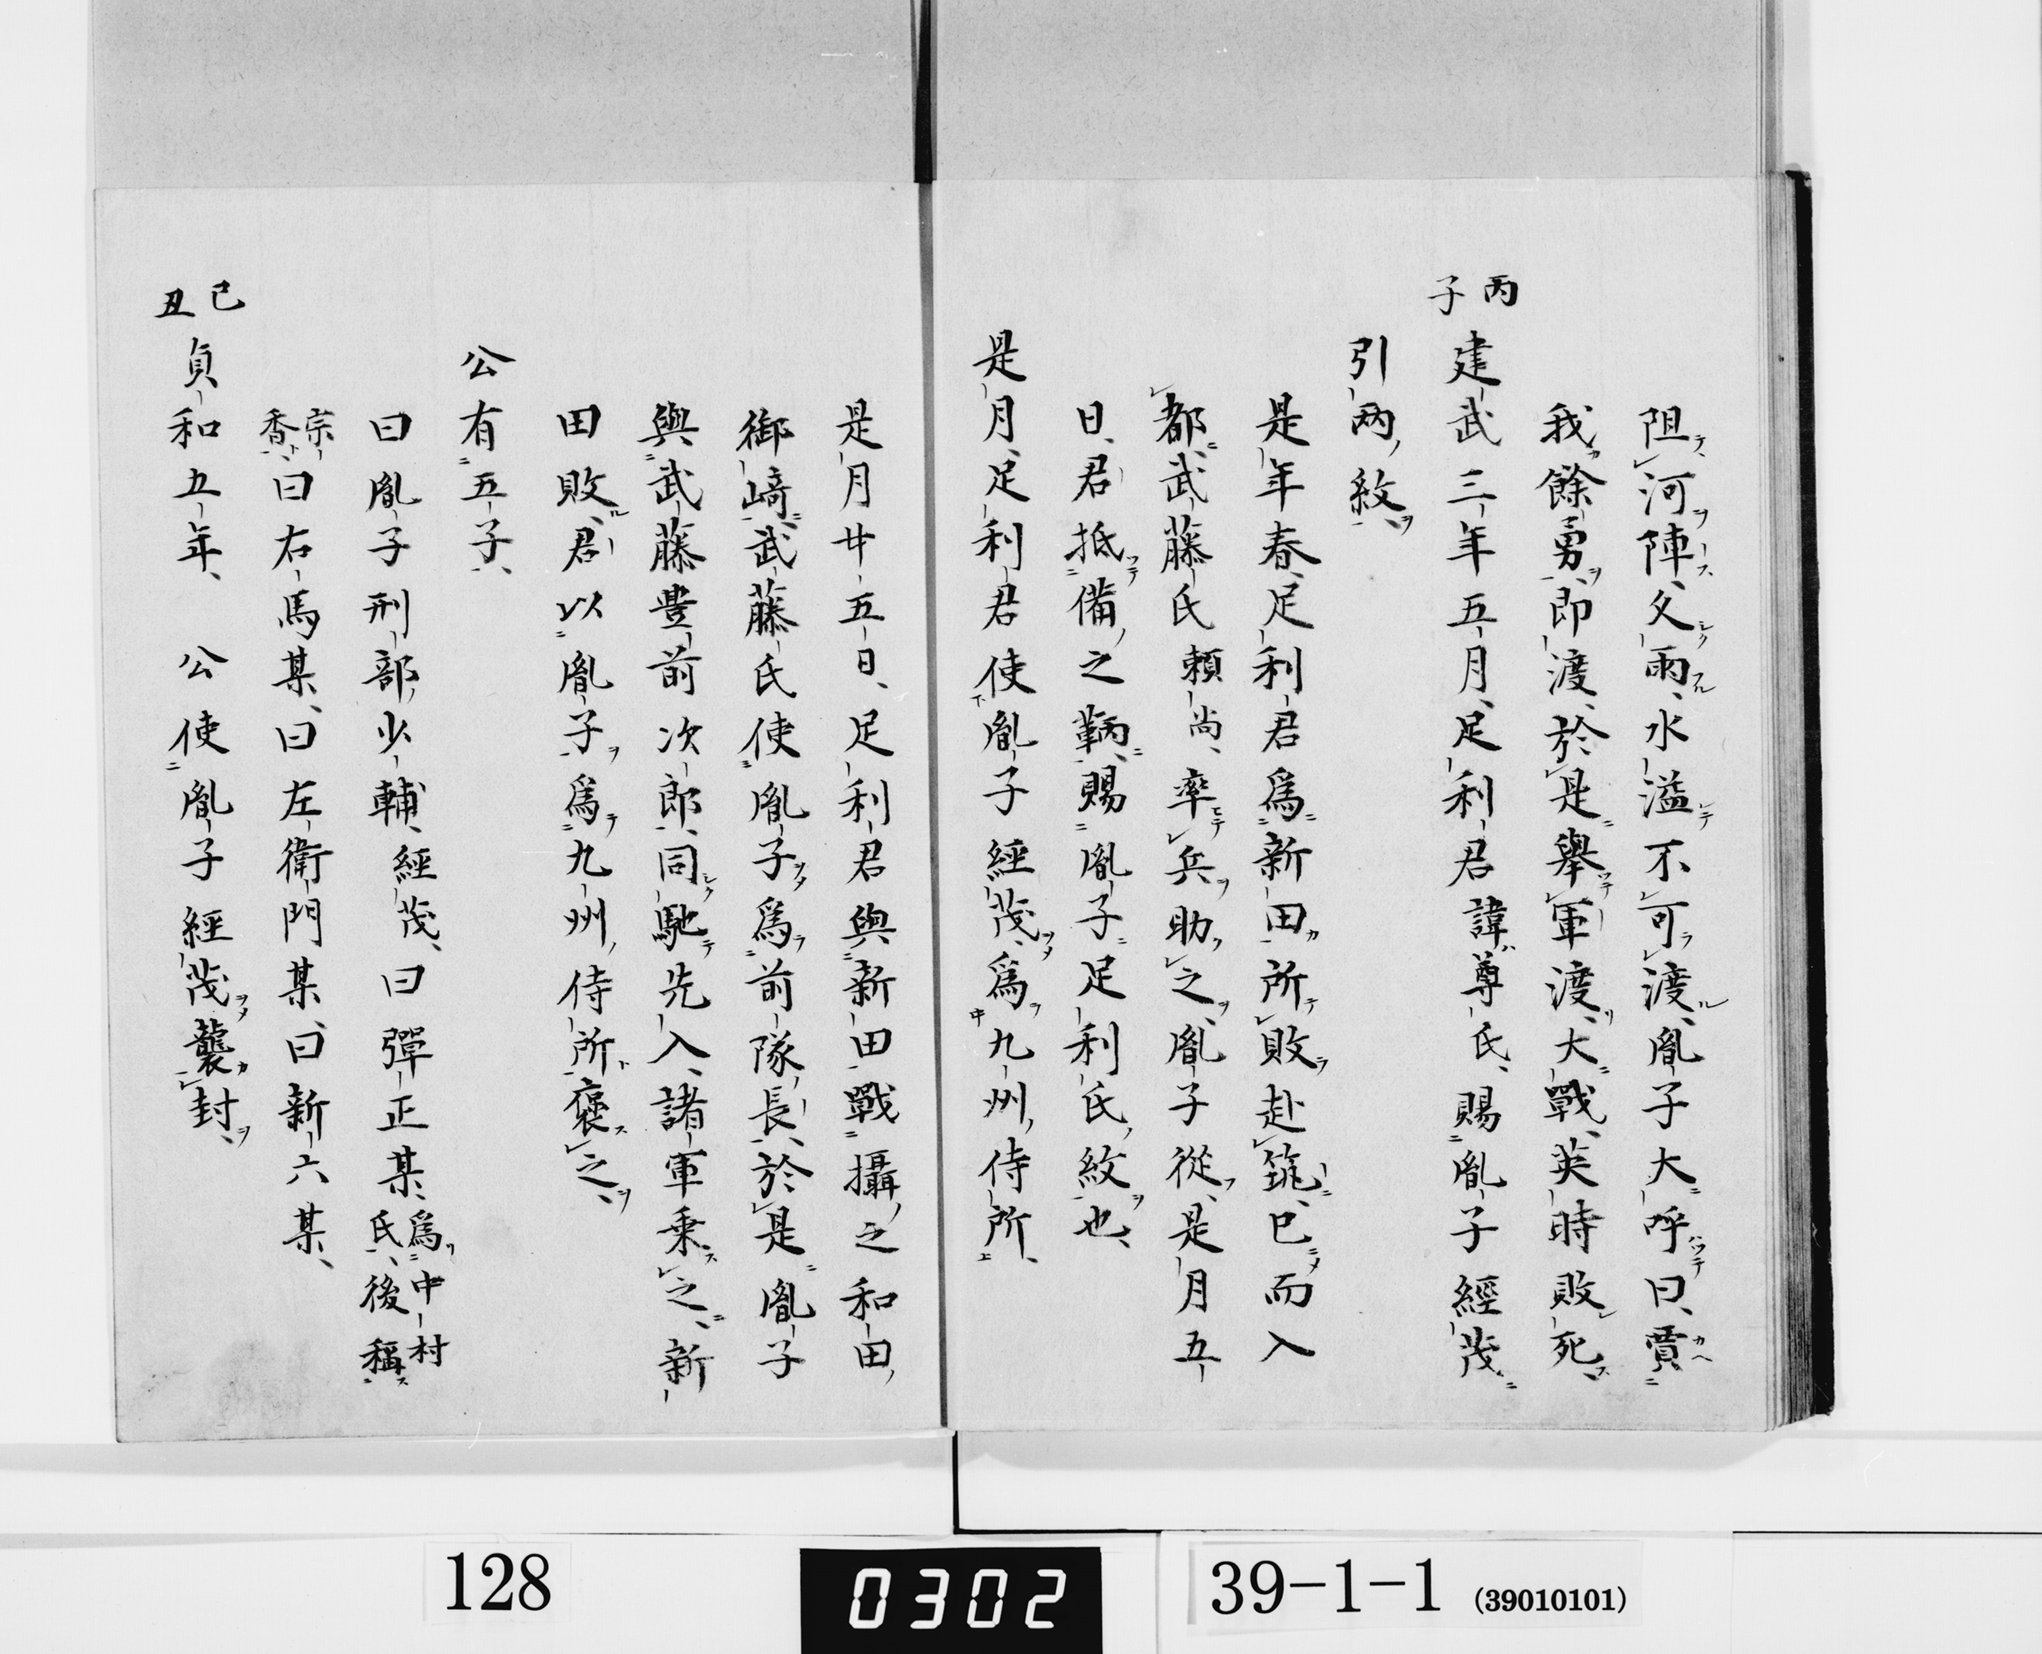 阻河陣、久雨、水溢不可渡、胤子大呼曰、賈
我餘勇、即渡、於是舉軍渡、大戰、英時敗死、
丙子 建武三年五月、足利君諱尊氏、賜胤子經茂
引両紋、
是年春、足利君爲新田所敗赴筑、已而入
都、武藤氏頼尚、率兵助之、胤子從、是月五
日、君抵備之鞆、賜胤子足利氏紋也、
是月、足利君使胤子經茂、爲九州侍所、
是月廿五日、足利君與新田戰攝之和田
御﨑、武藤氏使胤子爲前隊長、於是胤子
與武藤豊前次郎、同馳先入、諸軍乗之、新
田敗、君以胤子爲九州侍所褒之、
公有五子、
曰胤子刑部少輔、經茂、曰彈正某、爲中村氏、後稱
宗香、曰右馬某、曰左衛門某、曰新六某、
己丑 貞和五年、公使胤子經茂襲封、
128
0302
39-1-1 (39010101)